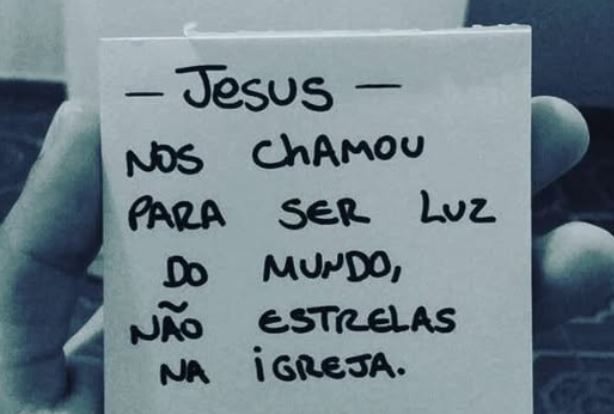 — Jesus —
NOS CHAMOU
PARA SER LUZ
DO MUNDO,
NÃO ESTRELAS
NA iGREJA.